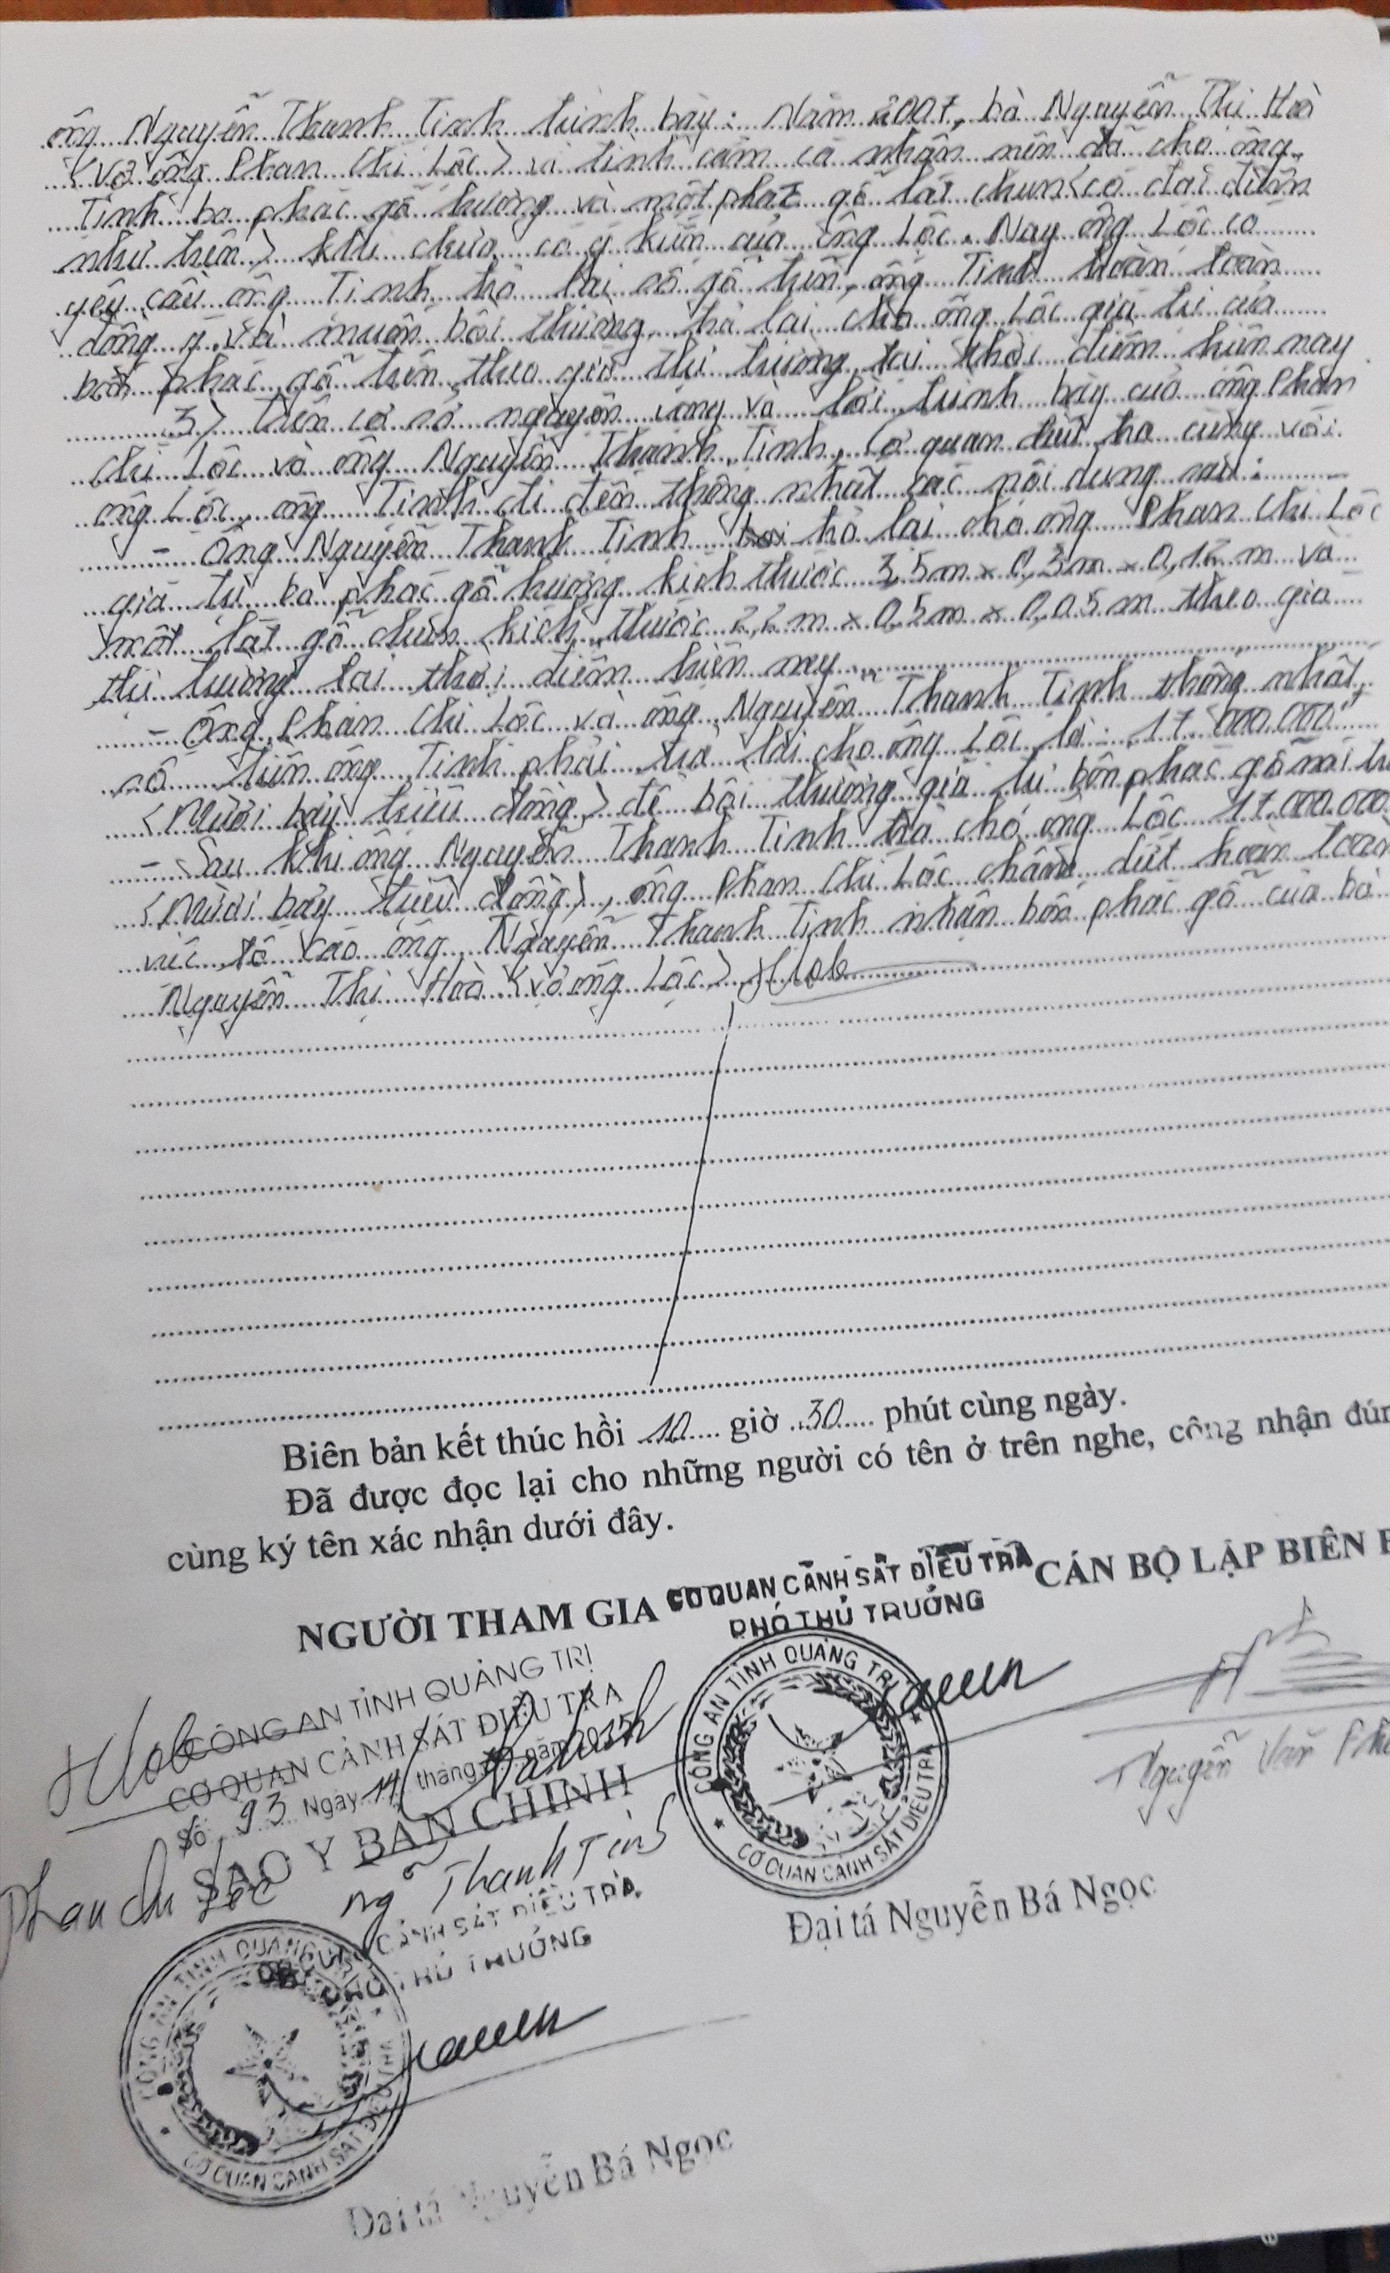 ông Nguyễn Thanh Tịnh trình bày: Năm 2007, bà Nguyễn Thị Hoà
<vợ ông Phan Chí Lộc> vì tình cảm cá nhân nên đã cho ông
Tịnh ba phác gỗ hương và một phác gỗ lát chun <có đặc điểm
như trên> khi chưa có ý kiến của ông Lộc. Nay ông Lộc có
yêu cầu ông Tịnh trả lại số gỗ trên, ông Tịnh hoàn toàn
đồng ý và muốn bồi thường, trả lại cho ông Lộc giá trị của
bốn phác gỗ trên theo giá thị trường tại thời điểm hiện nay
3> Trên cơ sở nguyện vọng và lời trình bày của ông Phan
Chí Lộc và ông Nguyễn Thanh Tịnh, Cơ quan điều tra cùng với
ông Lộc, ông Tịnh đi đến thống nhất các nội dung sau:
- Ông Nguyễn Thanh Tịnh trả lại cho ông Phan Chí Lộc
giá trị ba phác gỗ hương kích thước 3,5m x 0,3m x 0,12m và
một lát gỗ chun kích thước 2,2m x 0,5m x 0,05m theo giá
thị trường tại thời điểm hiện nay
- Ông Phan Chí Lộc và ông Nguyễn Thanh Tịnh thống nhất
số tiền ông Tịnh phải trả lại cho ông Lộc là: 17.000.000đ
<Mười bảy triệu đồng> để bồi thường giá trị bốn phác gỗ nói
- Sau khi ông Nguyễn Thanh Tịnh trả cho ông Lộc 17.000.000
<Mười bảy triệu đồng>, ông Phan Chí Lộc chấm dứt hoàn toàn
việc tố cáo ông Nguyễn Thanh Tịnh nhận bốn phác gỗ của bà
Nguyễn Thị Hoà <vợ ông Lộc>
Biên bản kết thúc hồi 10 giờ 30 phút cùng ngày.
Đã được đọc lại cho những người có tên ở trên nghe, công nhận đún
cùng ký tên xác nhận dưới đây.
NGƯỜI THAM GIA
CƠ QUAN CẢNH SÁT ĐIỀU TRA
PHÓ THỦ TRƯỞNG
CÁN BỘ LẬP BIÊN
CÔNG AN TỈNH QUẢNG TRỊ
CƠ QUAN CẢNH SÁT ĐIỀU TRA
Số 93 Ngày 14 tháng năm 2015
SAO Y BẢN CHÍNH
Phan Chí Lộc
Ng Thanh Tịnh
CÔNG AN TỈNH QUẢNG TRỊ
CƠ QUAN CẢNH SÁT ĐIỀU TRA
Nguyễn Văn
Đại tá Nguyễn Bá Ngọc
CƠ QUAN CẢNH SÁT ĐIỀU TRA
PHÓ THỦ TRƯỞNG
CÔNG AN TỈNH QUẢNG TRỊ
CƠ QUAN CẢNH SÁT ĐIỀU TRA
Đại tá Nguyễn Bá Ngọc